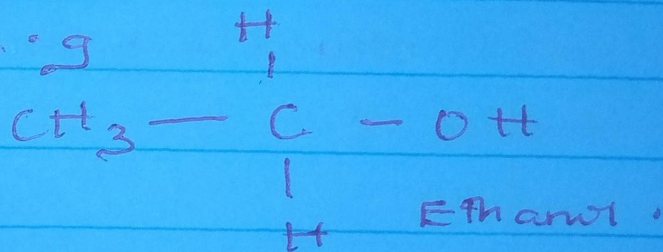 .. g
H
|
CH3 — C — OH
|
H
Ethanol.